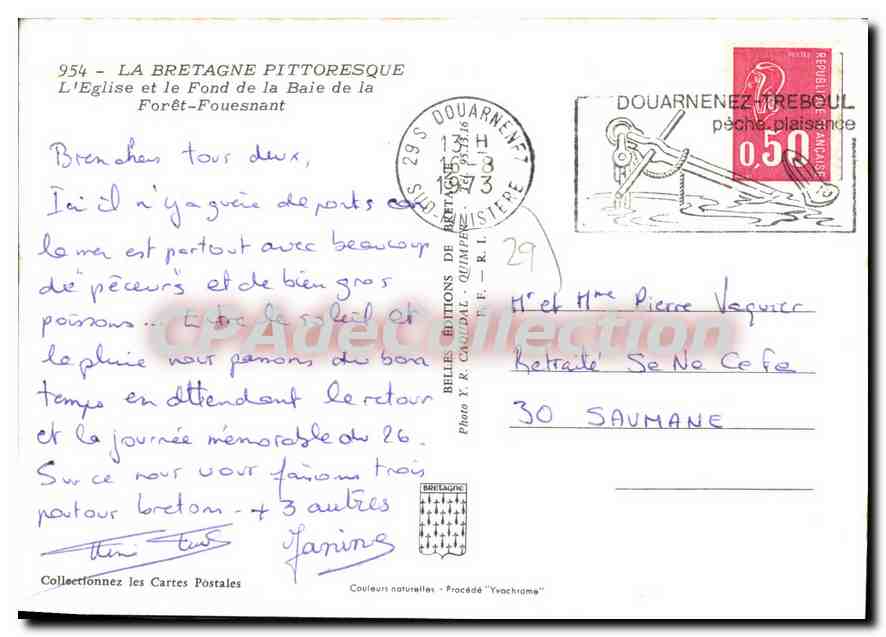 954 - LA BRETAGNE PITTORESQUE
L'Eglise et le Fond de la Baie de la
Forêt-Fouesnant
tous deux,
Ici il n'y a guère de ports car
la mer est partout avec beaucoup
de pêceurs et de bien gros
poissons... Entre le soleil et
la pluie nous passons du bon
temps en attendant le retour
et la journée mémorable du 26.
Sur ce nous vous faisons trois
poutour bretons - + 3 autres
Janine
Collectionnez les Cartes Postales
BELLES ÉDITIONS DE BRETAGNE
Photo Y. R. CAOUDAL - QUIMPER - Tél. 95.13.16
E. F. - R. I.
29 S DOUARNENEZ
13 H
16-8
1973
SUD-FINISTERE
29
DOUARNENEZ-TREBOUL
pêche plaisance
POSTES
REPUBLIQUE FRANÇAISE
0,50
Mr et Mme Pierre Vaquier
Retraité Se Ne Ce Fe
30 SAUMANE
BRETAGNE
Couleurs naturelles - Procédé "Yvochrome"
CPAdeCollection